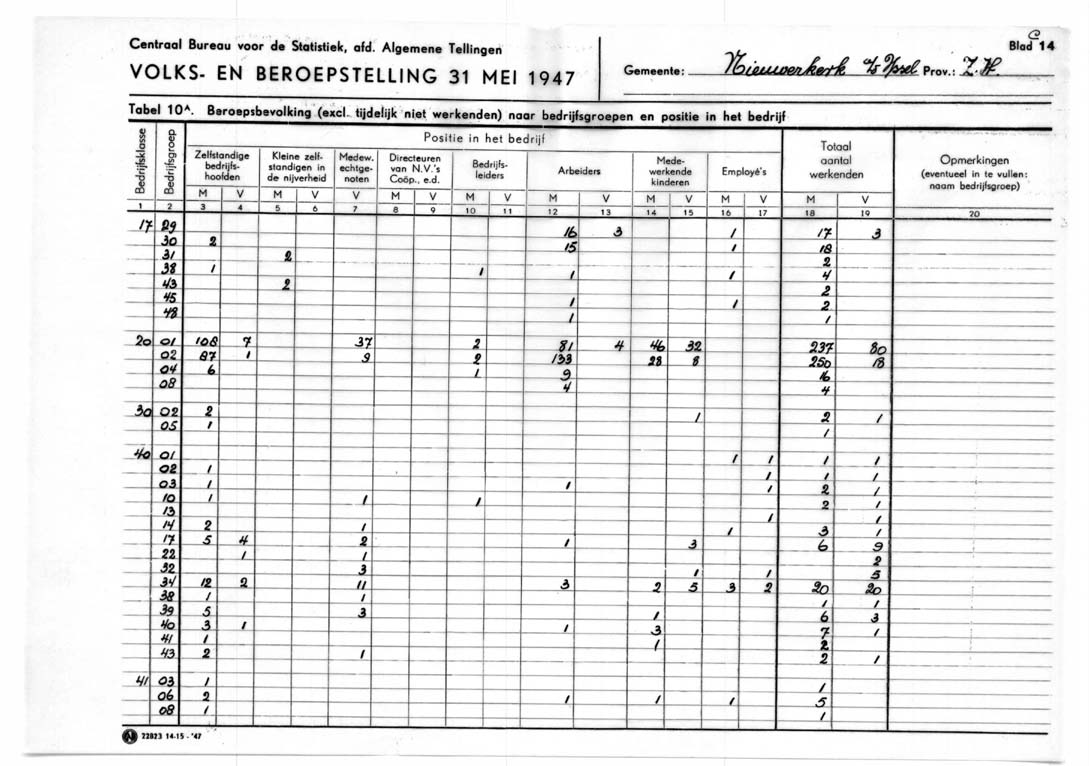 Centraal Bureau voor de Statistiek, afd. Algemene Tellingen
VOLKS- EN BEROEPSTELLING 31 MEI 1947
Gemeente: Nieuwerkerk a/d IJssel Prov.: Z.H.
Blad C 14
Tabel 10ᴬ. Beroepsbevolking (excl. tijdelijk niet werkenden) naar bedrijfsgroepen en positie in het bedrijf
Bedrijfsklasse Bedrijfsgroep Positie in het bedrijf Totaal aantal werkenden Opmerkingen (eventueel in te vullen: naam bedrijfsgroep)
Zelfstandige bedrijfshoofden Kleine zelfstandigen in de nijverheid Medew. echtgenoten Directeuren van N.V.'s Coöp., e.d. Bedrijfsleiders Arbeiders Medewerkende kinderen Employé's
M V M V V M V M V M V M V M V M V
1 2 3 4 5 6 7 8 9 10 11 12 13 14 15 16 17 18 19 20
17 29 16 3 1 17 3
30 2 15 1 18
31 2 2
38 1 1 1 1 4
43 2 2
45 1 1 2
48 1 1
20 01 108 7 37 2 81 4 46 32 237 80
02 87 1 9 2 133 28 8 250 18
04 6 1 9 16
08 4 4
30 02 2 1 2 1
05 1 1
40 01 1 1 1 1
02 1 1 1 1
03 1 1 1 2 1
10 1 1 1 2 1
13 1 1
14 2 1 1 3 1
17 5 4 2 1 3 6 9
22 1 1 2
32 3 1 1 5
34 12 2 11 3 2 5 3 2 20 20
38 1 1 1 1
39 5 3 1 6 3
40 3 1 1 3 7 1
41 1 1 2
43 2 1 2 1
41 03 1 1
06 2 1 1 1 5
08 1 1
22823 14-15 - '47